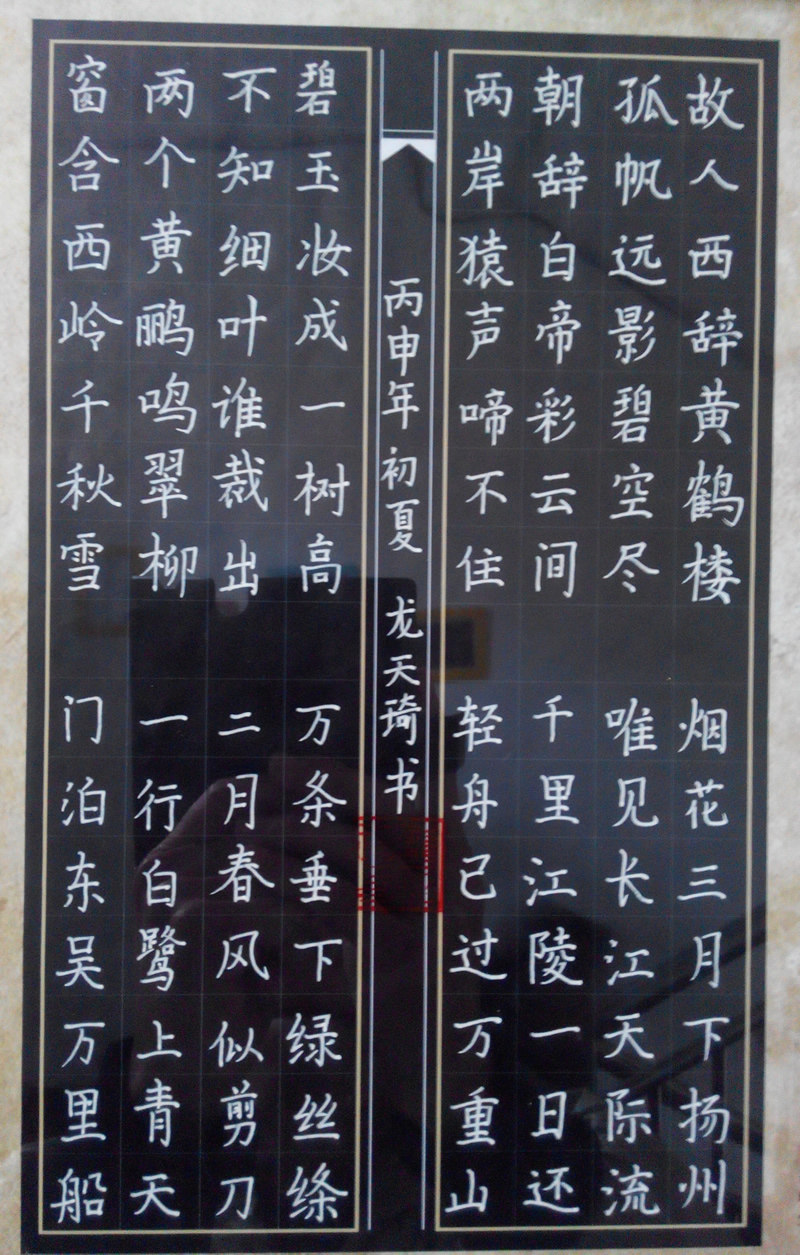 故人西辞黄鹤楼 烟花三月下扬州
孤帆远影碧空尽 唯见长江天际流
朝辞白帝彩云间 千里江陵一日还
两岸猿声啼不住 轻舟已过万重山
碧玉妆成一树高 万条垂下绿丝绦
不知细叶谁裁出 二月春风似剪刀
两个黄鹂鸣翠柳 一行白鹭上青天
窗含西岭千秋雪 门泊东吴万里船
丙申年初夏 龙天琦书